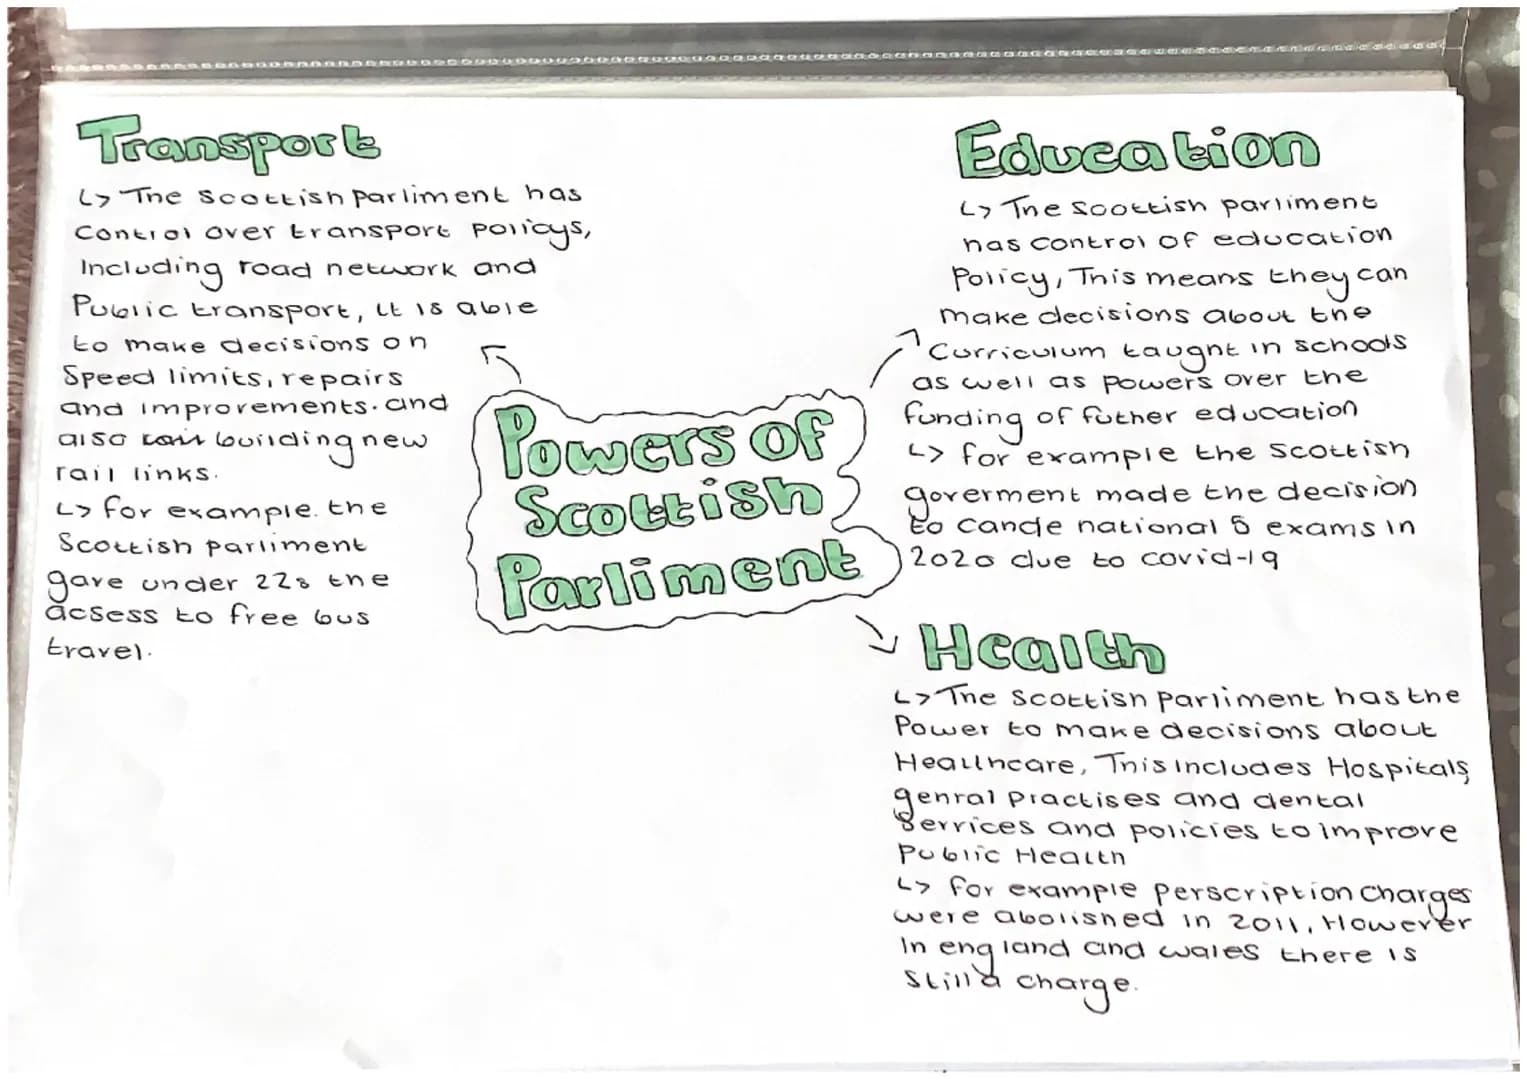 Transport
↳ The Scottish parliment has
control over transport policys,
Including road network and
Public transport, it is able
to make decisions on
Speed limits, repairs
and improvements. and
also rail building new
rail links.
↳ for example. the
Scottish parliment
gave under 22s the
acsess to free bus
travel.
Powers of
Scottish
Parliment
Education
↳ The Scottish parliment
has control of education
Policy, This means they can
make decisions about the
Curriculum taught in schools
as well as powers over the
funding of futher education
↳ for example the Scottish
goverment made the decision
to cancle national 5 exams in
2020 due to covid-19
Health
↳ The Scottish parliment has the
Power to make decisions about
Healthcare, This includes Hospitals,
genral practises and dental
Services and policies to improve
Public Health
↳ for example perscription charges
were abolished in 2011, However
in england and wales there is
still a charge.